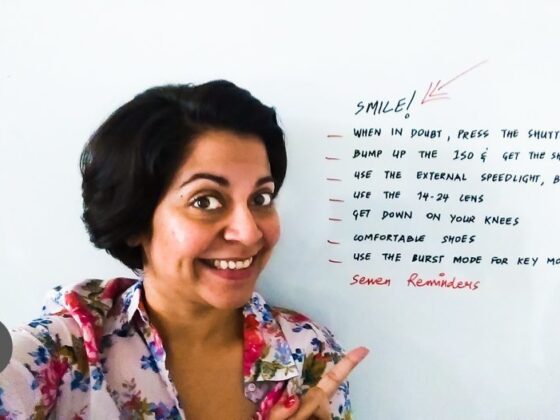 SMILE!
— WHEN IN DOUBT, PRESS THE
— BUMP UP THE ISO & GET THE
— USE THE EXTERNAL SPEEDLIGHT,
— USE THE 14-24 LENS
— GET DOWN ON YOUR KNEES
— COMFORTABLE SHOES
— USE THE BURST MODE FOR KEY
Seven Reminders